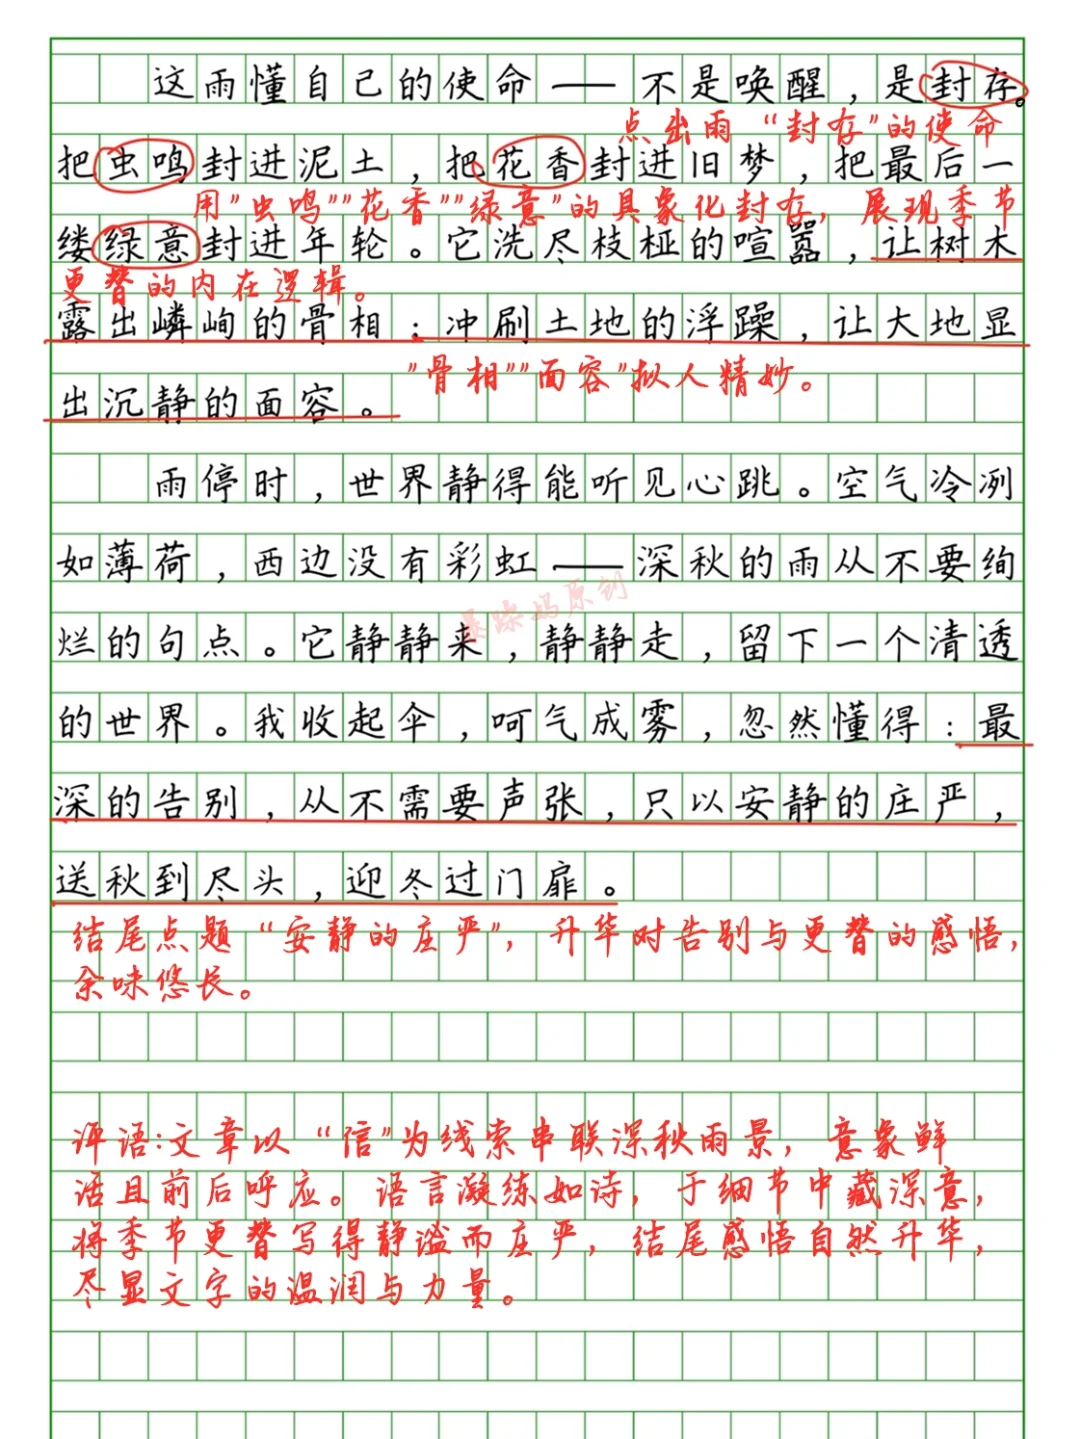 这雨懂自己的使命——不是唤醒，是封存。
点出雨“封存”的使命
把虫鸣封进泥土，把花香封进旧梦，把最后一
用"虫鸣""花香""绿意"的具象化封存，展现季节
缕绿意封进年轮。它洗尽枝桠的喧嚣，让树木
更替的内在逻辑。
露出嶙峋的骨相；冲刷土地的浮躁，让大地显
"骨相""面容"拟人精妙。
出沉静的面容。
雨停时，世界静得能听见心跳。空气冷冽
如薄荷，西边没有彩虹——深秋的雨从不要绚
暴躁妈原创
烂的句点。它静静来，静静走，留下一个清透
的世界。我收起伞，呵气成雾，忽然懂得：最
深的告别，从不需要声张，只以安静的庄严，
送秋到尽头，迎冬过门扉。
结尾点题“安静的庄严”，升华对告别与更替的感悟，
余味悠长。
评语:文章以“信”为线索串联深秋雨景，意象鲜
活且前后呼应。语言凝练如诗，于细节中藏深意，
将季节更替写得静谧而庄严，结尾感悟自然升华，
尽显文字的温润与力量。